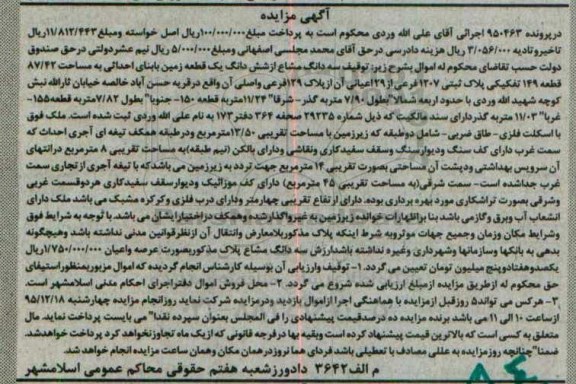 آگهی مزایده
درپرونده ۹۵۰۴۶۳ اجرائی آقای علی الله وردی محکوم است به پرداخت مبلغ ۱۰۰/۰۰۰/۰۰۰ریال اصل خواسته ومبلغ ۱۱/۸۱۲/۴۴۳ریال
تاخیرتادیه ۳/۰۵۶/۰۰۰ ریال هزینه دادرسی درحق آقای محمد مجلسی اصفهانی ومبلغ ۵/۰۰۰/۰۰۰ ریال نیم عشردولتی درحق صندوق
دولت حسب تقاضای محکوم له اموال بشرح زیر توقیف سه دانگ مشاع ازشش دانگ یک قطعه زمین بابنای احداثی به مساحت ۸۷/۴۲
قطعه ۱۴۹ تفکیکی پلاک ثبتی ۱۲۰۷ فرعی از ۲۹ اعیانی آن ازپلاک ۱۲۹فرعی واصلی آن واقع درقریه حسن آباد خالصه خیابان ثارالله نبش
کوچه شهید الله وردی با حدود اربعه شمالا" بطول ۷/۹۰ متربه گذر- شرقا" ۱۱/۲۴متربه قطعه ۱۵۰- جنوبا" بطول ۷/۸۲متربه قطعه۱۵۵-
غربا" ۱۱/۰۳ متربه گذردارای سند مالکیت که ذیل شماره ۲۹۲۳۵ صفحه ۳۶۴ دفتر۱۷۳ به نام علی الله وردی ثبت شده است. ملک فوق
با اسکلت فلزی - طاق ضربی - شامل دوطبقه که زیرزمین با مساحت تقریبی ۱۳/۵۰مترمربع ودرطبقه همکف تیغه ای آجری احداث که
سمت غرب دارای کف سنگ ودیوارسنگ وسقف سفیدکاری ونقاشی ودارای بالکن (نیم طبقه)به مساحت تقریبی ۸ مترمربع درانتهای
آن سرویس بهداشتی ودپشت آن مساحتی بصورت تقریبی ۱۴ مترمربع جهت تردد به زیرزمین می باشدکه با تیغه آجری ازتجاری سمت
غرب جداشده است- سمت شرقی(به مساحت تقریبی ۴۵ مترمربع) دارای کف موزائیک ودیوارسقف سفیدکاری هردوقسمت غربی
وشرقی بصورت تراشکاری مورد بهره برداری بوده، دارای ارتفاع تقریبی چهارمتر ودارای درب فلزی وکرکره مشبک می باشد ملک دارای
انشعاب آب وبرق وگازمی باشد بنا براظهارات خوانده زیرزمین به غیرواگذارشده وهمکف دراختیارایشان می باشد. با توجه به شرایط فوق
وشرایط مکان وزمان وجمیع جهات موثروبه شرط اینکه پلاک مذکوربلامعارض وانتقال آن ازنظرقوانین مدنی نداشته باشد وهیچگونه
بدهی به بانکها وسازمانها وشهرداری وغیره نداشته باشدارزش سه دانگ مشاع پلاک مذکوربصورت عرصه واعیان ۱/۷۵۰/۰۰۰/۰۰۰ریال
یکصدوهفتادوپنج میلیون تومان تعیین می گردد. ۱- توقیف وارزیابی آن بوسیله کارشناس انجام گردیده که اموال مزبوربمنظوراستیفای
حق محکوم له ازطریق مزایده ازمبلغ ارزیابی شده شروع می گردد. ۲- محل فروش اموال دفتراجرای احکام مدنی اسلامشهر است.
۳- هرکس می تواند۵ روزقبل ازمزایده با هماهنگی اجرا ازاموال بازدید ودرمزایده شرکت نماید روزانجام مزایده چهارشنبه ۹۵/۱۲/۱۸
ازساعت ۱۰ الی ۱۱ می باشد برنده مزایده ده درصدقیمت پیشنهادی را فی المجلس بعنوان سپرده نقدا" می بایست پرداخت نماید. مال
متعلق به کسی است که بالاترین قیمت پیشنهاد کرده است وبقیه بها درفرجه قانونی که ازیک ماه تجاوزنخواهد کرد پرداخت خواهدشد.
ضمنا" چنانچه روزمزایده به عللی مصادف با تعطیلی باشد فردای همانروزدرهمان مکان وهمان ساعت مزایده انجام خواهد شد.
م الف۳۶۴۲ دادورزشعبه هفتم حقوقی محاکم عمومی اسلامشهر